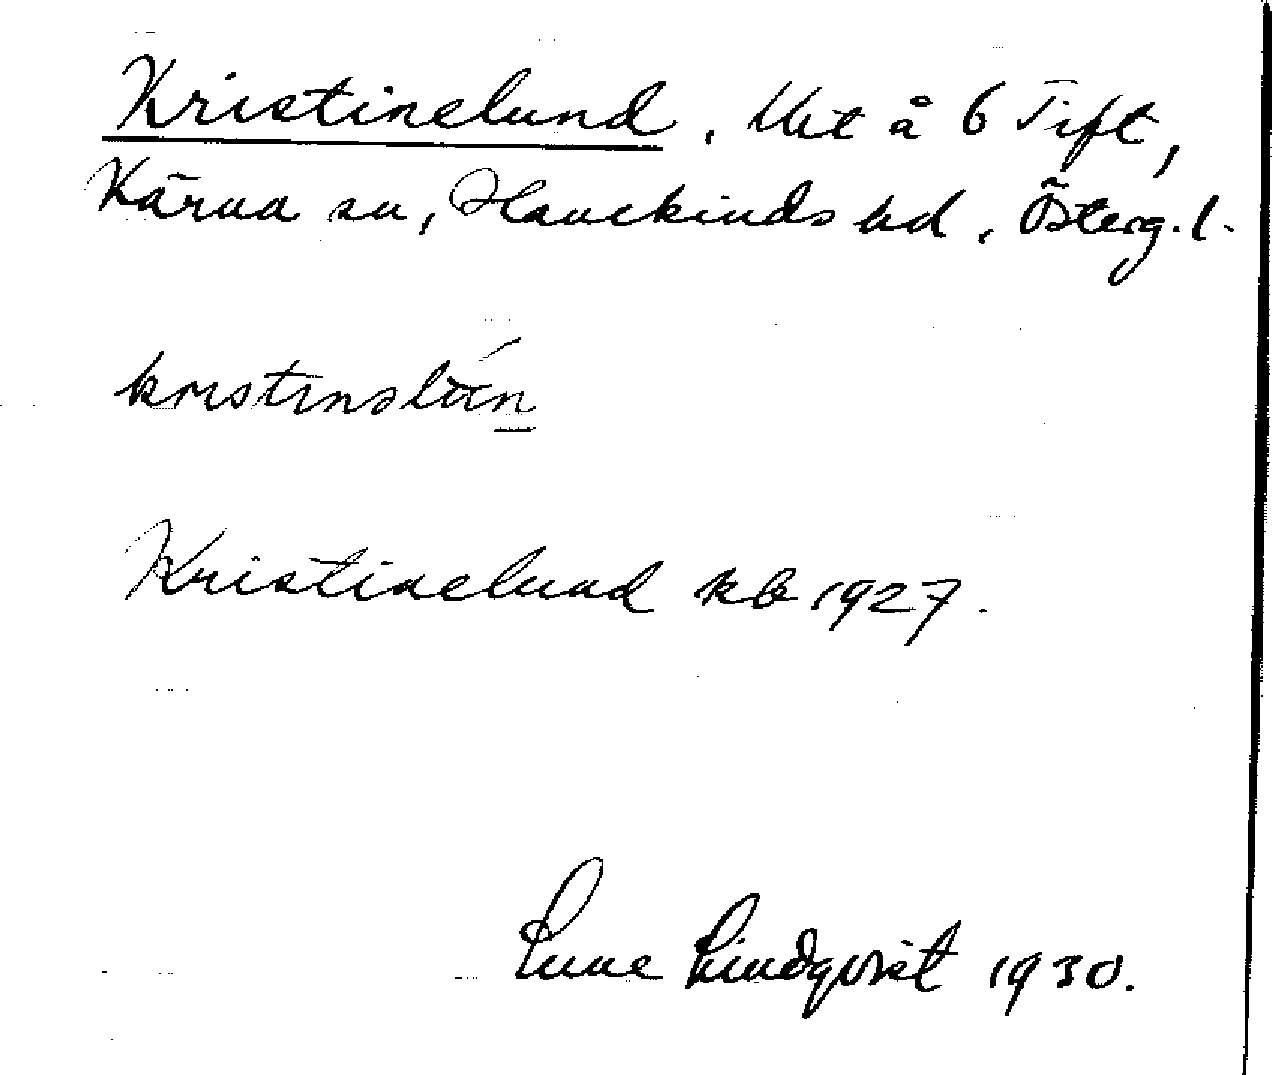 Kristinelund, Utt å 6 Tift,
Kärna sn, Hanekinds hd, Österg. l.
Kristinelund kb 1927.
Sune Lindqvist 1930.